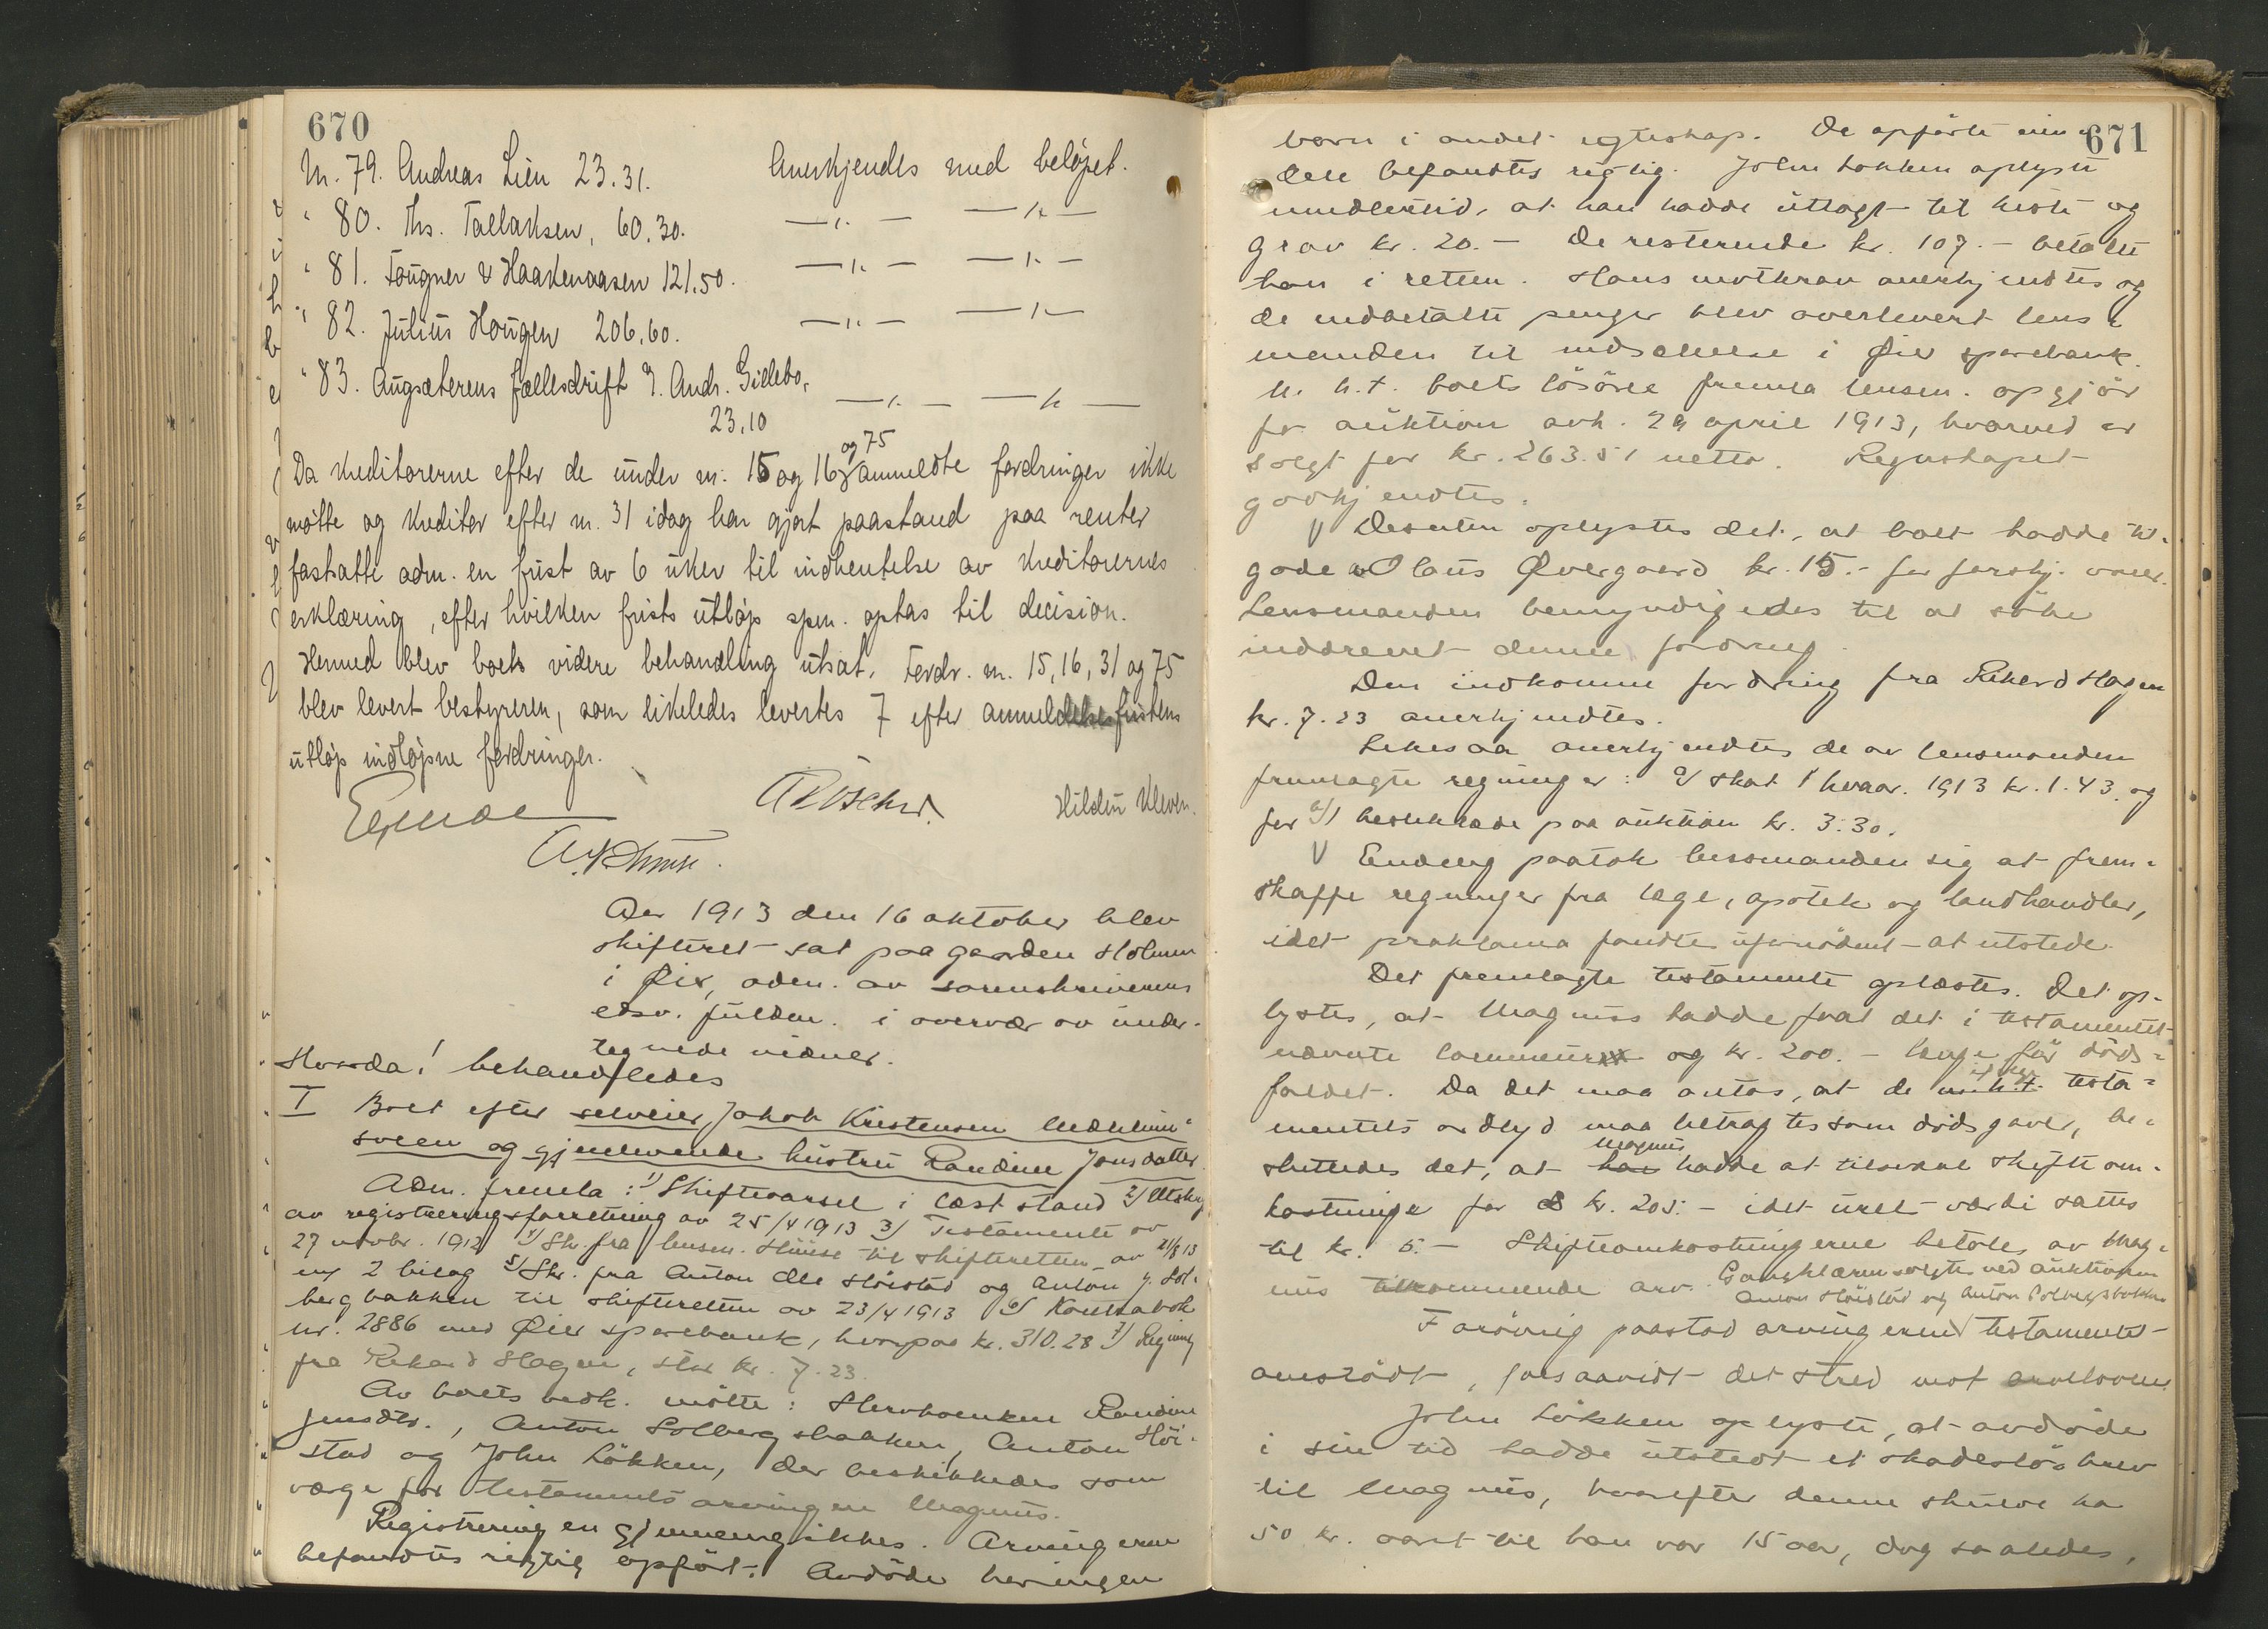 670
N. 79. Andreas Lien 23.31. Anerkjendes med beløpet.
" 80. Ths. Tallaksen, 60.30. —"— —"—
" 81. Tougner & Haakenaasen 121.50. —"— —"—
" 82. Julius Hougen 206.60. —"— —"—
" 83. Augsæterens fællesdrift v. Andr. Gillebo,
23.10 —"— —"—
Da kreditorerne efter de under nr. 15 og 16 og 75 anmeldte fordringer ikke
møtte og kreditor efter nr. 31 idag har gjort paastand paa renter
fastsatte adm. en frist av 6 uker til indhentelse av kreditorernes
erklæring, efter hvilken frists utløp spm. optas til decision.
Hermed blev boets videre behandling utsat. Fordr. nr. 15, 16, 31 og 75
blev levert bestyreren, som likeledes levertes 7 efter anmeldelsesfristens
utløp indløpne fordringer.
Hildin Kleven.
Aar 1913 den 16 oktober blev
skifteret sat paa gaarden Holmen
i Øier, adm. av sorenskriverens
edsv. fuldm. i overvær av under-
tegnede vidner.
Hvorda! behandledes
I Boet efter selveier Jakob Kristensen
sveen og gjenlevende hustru Randine Jonsdatter.
Adm. fremla: 1) Skiftevarsel i læst stand 2) Utskr.
av registreringsforretning av 25/4 1913 3) Testamente av
27 novbr. 1912 4) Skr. fra lensm. Huuse til skifteretten av 21/8 13
m/ 2 bilag 5) Skr. fra Anton Høistad og Anton J. Sol-
bergbakken til skifteretten av 23/4 1913 6) Kontrabok
nr. 2886 med Øier sparebank, hvorpaa kr. 310.28 7) Regning
fra Rikard Hagen, stor kr. 7.23.
Av boets vedk. møtte: Stervboenken Randine
Jensdtr., Anton Solbergsbakken, Anton Høi-
stad og John Løkken, der beskikkedes som
værge for testamentsarvingen Magnus.
Registreringen gjennemgikkes. Arvingerne
befandtes rigtig opført. Avdøde har ingen
671
børn i andet egteskap. De opførte eien-
dele befandtes rigtig. John Løkken oplyste
imidlertid, at han hadde utlagt til kiste og
grav kr. 20.- De resterende kr. 107.- betalte
han i retten. Hans motkrav anerkjendtes og
de indbetalte penger blev overlevert lens-
manden til indsættelse i Øier sparebank.
M. h. t. boets løsøre fremla lensm. opgjør
for auktion avh. 29 april 1913, hvorved er
solgt for kr. 263.51 netto. Regnskapet
godkjendtes.
V Desuten oplystes det, at boet hadde til-
gode av Olaus Øvergaard kr. 15.- for forskj. varer.
Lensmanden bemyndigedes til at søke
inddrevet denne fordring.
Den indkomne fordring fra Rikard Hagen
kr. 7.23 anerkjendtes.
Likesaa anerkjendtes de av lensmanden
fremlagte regninger: a/ Skat 1 hvaar. 1913 kr. 1.43. og
for b/ 1 hesteklæde paa auktion kr. 3.30.
V Endelig paatok lensmanden sig at frem-
skaffe regninger fra læge, apotek og landhandler,
idet proklama fandtes ufornødent at utstede.
Det fremlagte testamente oplæstes. Det op-
lystes, at Magnus hadde faat det i testamentet
nævnte lommeur og kr. 200.- længe før døds-
faldet. Da det maa antas, at de testa-
mentets ordlyd maa betragtes som dødsgaver, be-
sluttedes det, at Magnus hadde at tilsvare skifteom-
kostninger for kr. 205.- idet urets værdi sattes
til kr. 5.- Skifteomkostningerne betales av Mag-
nus tilkommende arv. Gangklærne solgtes ved auktionen
Anton Høistad og Anton Solbergsbakken
Forøvrig paastod arvingerne testamentet
omstødt, forsaavidt det stred mot arveloven.
John Løkken oplyste, at avdøde
i sin tid hadde utstedt et skadesløsbrev
til Magnus, hvorefter denne skulde ha
50 kr. aaret til han var 15 aar, dog saaledes,